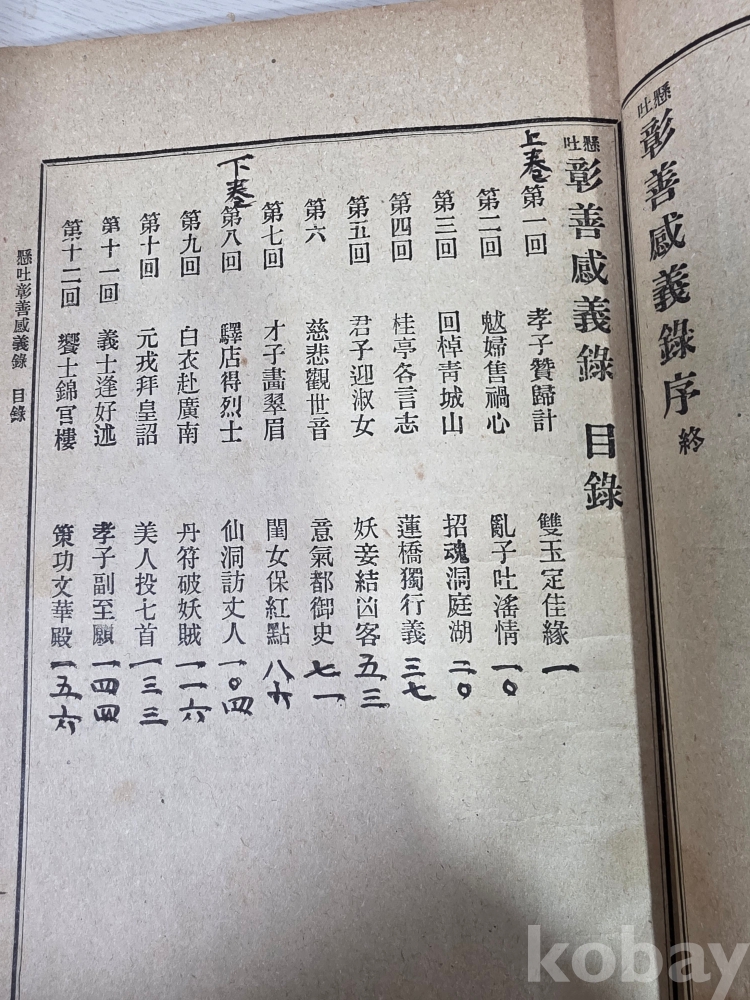 懸吐彰善感義錄序 終
懸吐彰善感義錄 目錄
上卷 第一回 孝子贊歸計 雙玉定佳緣 一
第二回 魃婦售禍心 亂子吐滛情 一〇
第三回 回棹靑城山 招魂洞庭湖 二〇
第四回 桂亭各言志 蓮橋獨行義 三七
第五回 君子迎淑女 妖妾結凶客 五三
第六 慈悲觀世音 意氣都御史 七一
第七回 才子畵翠眉 閨女保紅點 八六
下卷 第八回 驛店得烈士 仙洞訪丈人 一〇四
第九回 白衣赴廣南 丹符破妖賊 一一六
第十回 元戎拜皇詔 美人投七首 一三三
第十一回 義士逢好逑 孝子副至願 一四四
第十二回 饗士錦官樓 策功文華殿 一五六
懸吐彰善感義錄 目錄
kobay